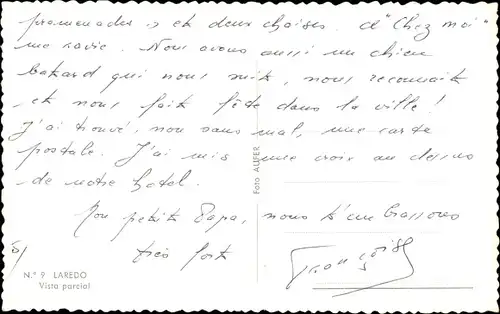 promenades » et deux chaises. d'"Chez moi"
me ravie. Nous avons aussi un chien
batard qui nous suit, nous reconnait
et nous fait fête dans la ville!
J'ai trouvé, non sans mal, une carte
postale. J'ai mis une croix au dessus
de notre hotel.
Mon petit Papa, nous t'embrassons
très fort
Françoise
Foto ALIFER
N.º 9 LAREDO
Vista parcial